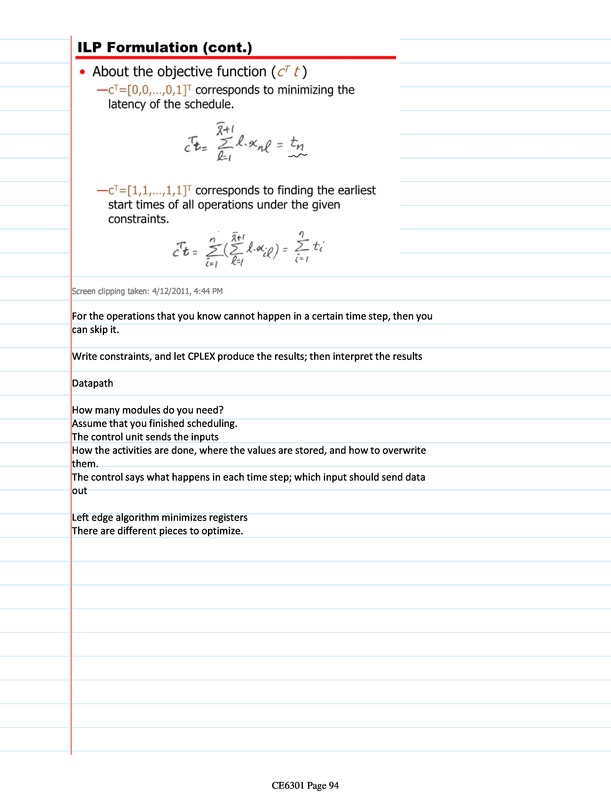 ILP Formulation (cont.)
• About the objective function (cᵀ t)
—cᵀ=[0,0,...,0,1]ᵀ corresponds to minimizing the
latency of the schedule.
cᵀt = Σ_{l=1}^{λ̄+1} l·x_{nl} = t_n
—cᵀ=[1,1,...,1,1]ᵀ corresponds to finding the earliest
start times of all operations under the given
constraints.
cᵀt = Σ_{i=1}^{n} (Σ_{l=1}^{λ̄+1} l·x_{il}) = Σ_{i=1}^{n} t_i
Screen clipping taken: 4/12/2011, 4:44 PM
For the operations that you know cannot happen in a certain time step, then you
can skip it.
Write constraints, and let CPLEX produce the results; then interpret the results
Datapath
How many modules do you need?
Assume that you finished scheduling.
The control unit sends the inputs
How the activities are done, where the values are stored, and how to overwrite
them.
The control says what happens in each time step; which input should send data
out
Left edge algorithm minimizes registers
There are different pieces to optimize.
CE6301 Page 94